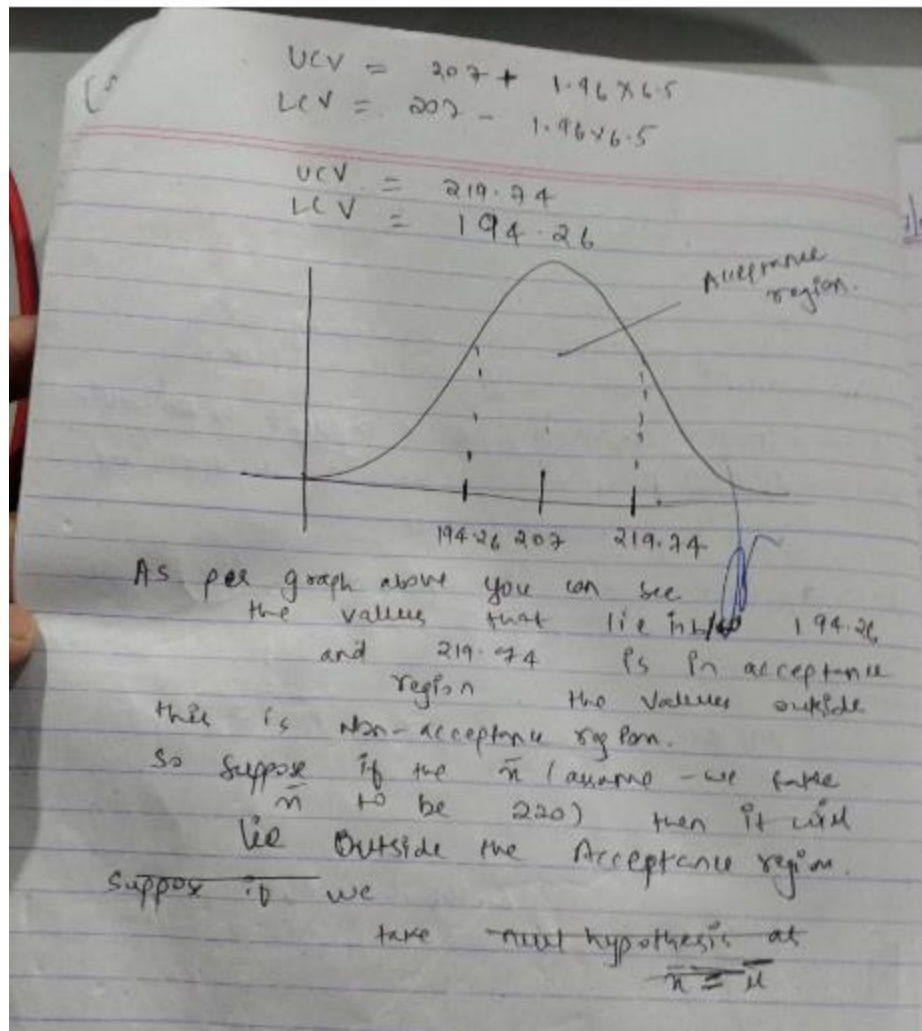 UCV = 207 + 1.96 X 6.5
LCV = 207 - 1.96 X 6.5
UCV = 219.74
LCV = 194.26
Acceptance
region.
194.26 207 219.74
As per graph above you can see
the values that lie 194.26
and 219.74 is in acceptance
region the values outside
this is Non-acceptance region.
So suppose if the x̄ (assume - we take
x̄ to be 220) then it will
lie outside the Acceptance region.
Suppose if we
take null hypothesis as
x̄ = μ